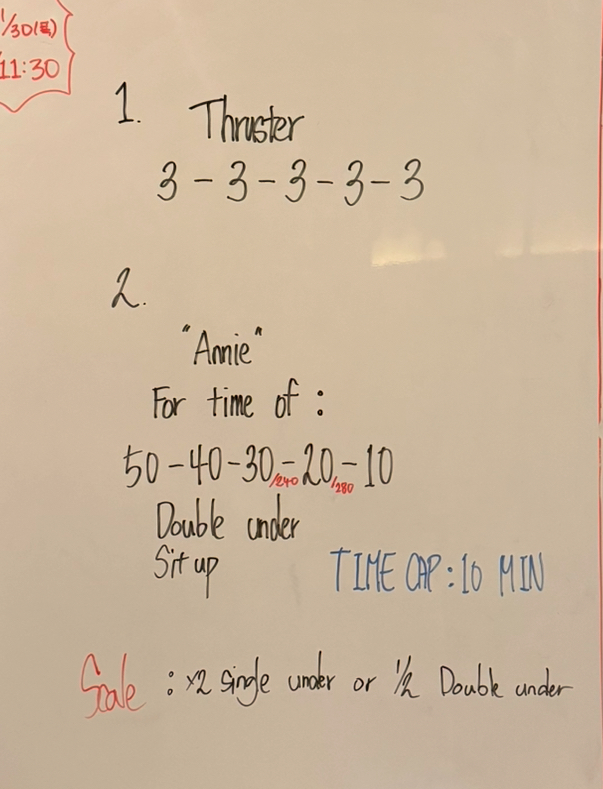 1/30(목)
11:30
1. Thruster
3-3-3-3-3
2.
"Annie"
For time of :
50-40-30-20-10
/240 /280
Double under
Sit up
TIME CAP : 10 MIN
Scale : x2 Single under or 1/2 Double under